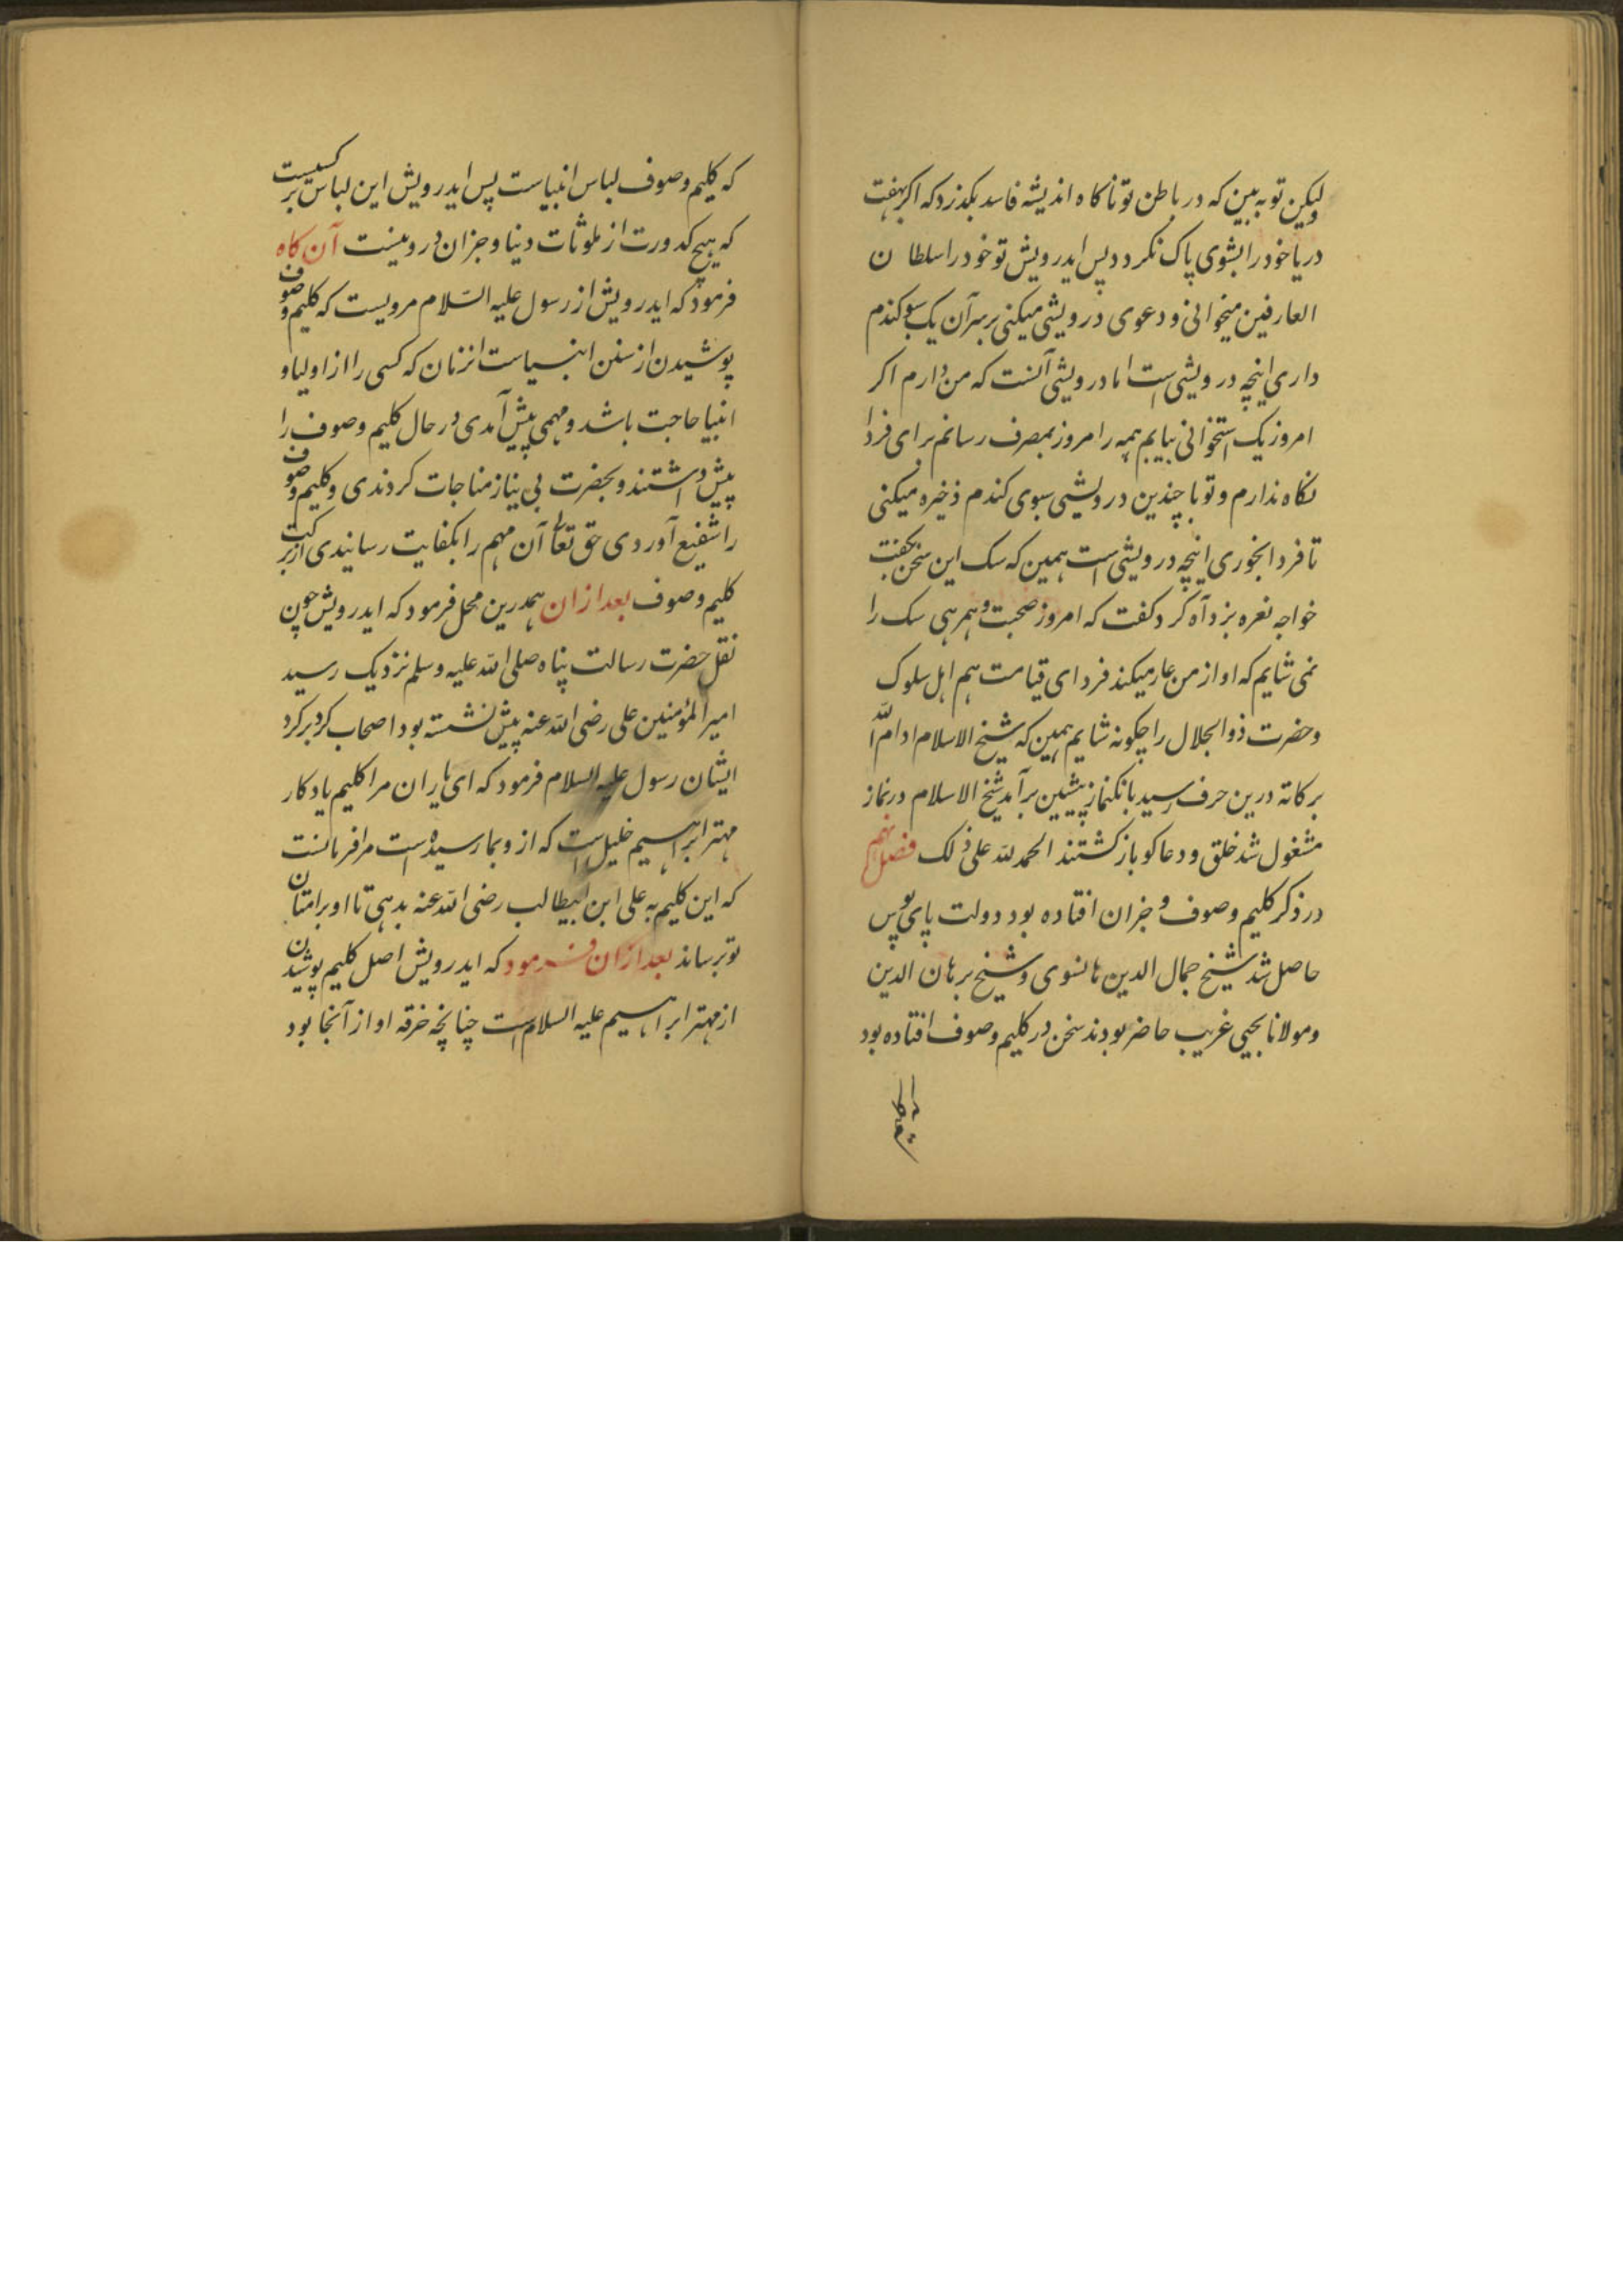 لیکن تو به بین که در باطن تو ناکاه اندیشه فاسد بکذرد که اکر بهفت
دریا خود را بشوی پاک نکردد پس ایدرویش تو خود را سلطان
العارفین میخوانی و دعوی درویشی میکنی بر سر آن یک سبو کندم
داری اینچه درویشی است اما درویشی آنست که من دارم اکر
امروز یک استخوانی بیابم همه را امروز بمصرف رسانم برای فردا
نکاه ندارم و تو با چندین درویشی سبوی کندم ذخیره میکنی
تا فردا بخوری اینچه درویشی است همین که سک این سخن بکفت
خواجه نعره بزد آه کرد کفت که امروز صحبت و همرهی سک را
نمی شایم که او از من عار میکند فردای قیامت هم اهل سلوک
و حضرت ذوالجلال را چکونه شایم همین که شیخ الاسلام ادام الله
برکاته درین حرف رسید بانک نماز پیشین برآمد شیخ الاسلام در نماز
مشغول شد خلق و دعاکو باز کشتند الحمد لله علی ذلک فصل نهم
در ذکر کلیم و صوف و جزان افتاده بود دولت پای بوس
حاصل شد شیخ جمال الدین هانسوی و شیخ برهان الدین
و مولانا یحیی غریب حاضر بودند سخن در کلیم و صوف افتاده بود
که کلیم و صوف لباس انبیاست پس ایدرویش این لباس بر کسیست
که هیچ کدورت از ملوثات دنیا و جزان درو نیست آن کاه
فرمود که ایدرویش از رسول علیه السلام مرویست که کلیم و صوف
پوشیدن از سنن انبیاست انزمان که کسی را از اولیا و
انبیا حاجت باشد و مهمی پیش آمدی در حال کلیم و صوف را
پیش داشتند و بحضرت بی نیاز مناجات کردندی و کلیم و صوف
را شفیع آوردی حق تعالی آن مهم را بکفایت رسانیدی از برکت
کلیم و صوف بعد ازان همدرین محل فرمود که ایدرویش چون
نقل حضرت رسالت پناه صلی الله علیه وسلم نزدیک رسید
امیر المؤمنین علی رضی الله عنه پیش نشسته بود اصحاب کرد بر کرد
ایشان رسول علیه السلام فرمود که ای یاران مرا کلیم یادکار
مهتر ابراهیم خلیل است که ازو بما رسیده است مرا فرمانست
که این کلیم به علی ابن ابیطالب رضی الله عنه بدهی تا او برامتان
تو برساند بعد ازان فرمود که ایدرویش اصل کلیم پوشیدن
از مهتر ابراهیم علیه السلام است چنانچه خرقه او از آنجا بود